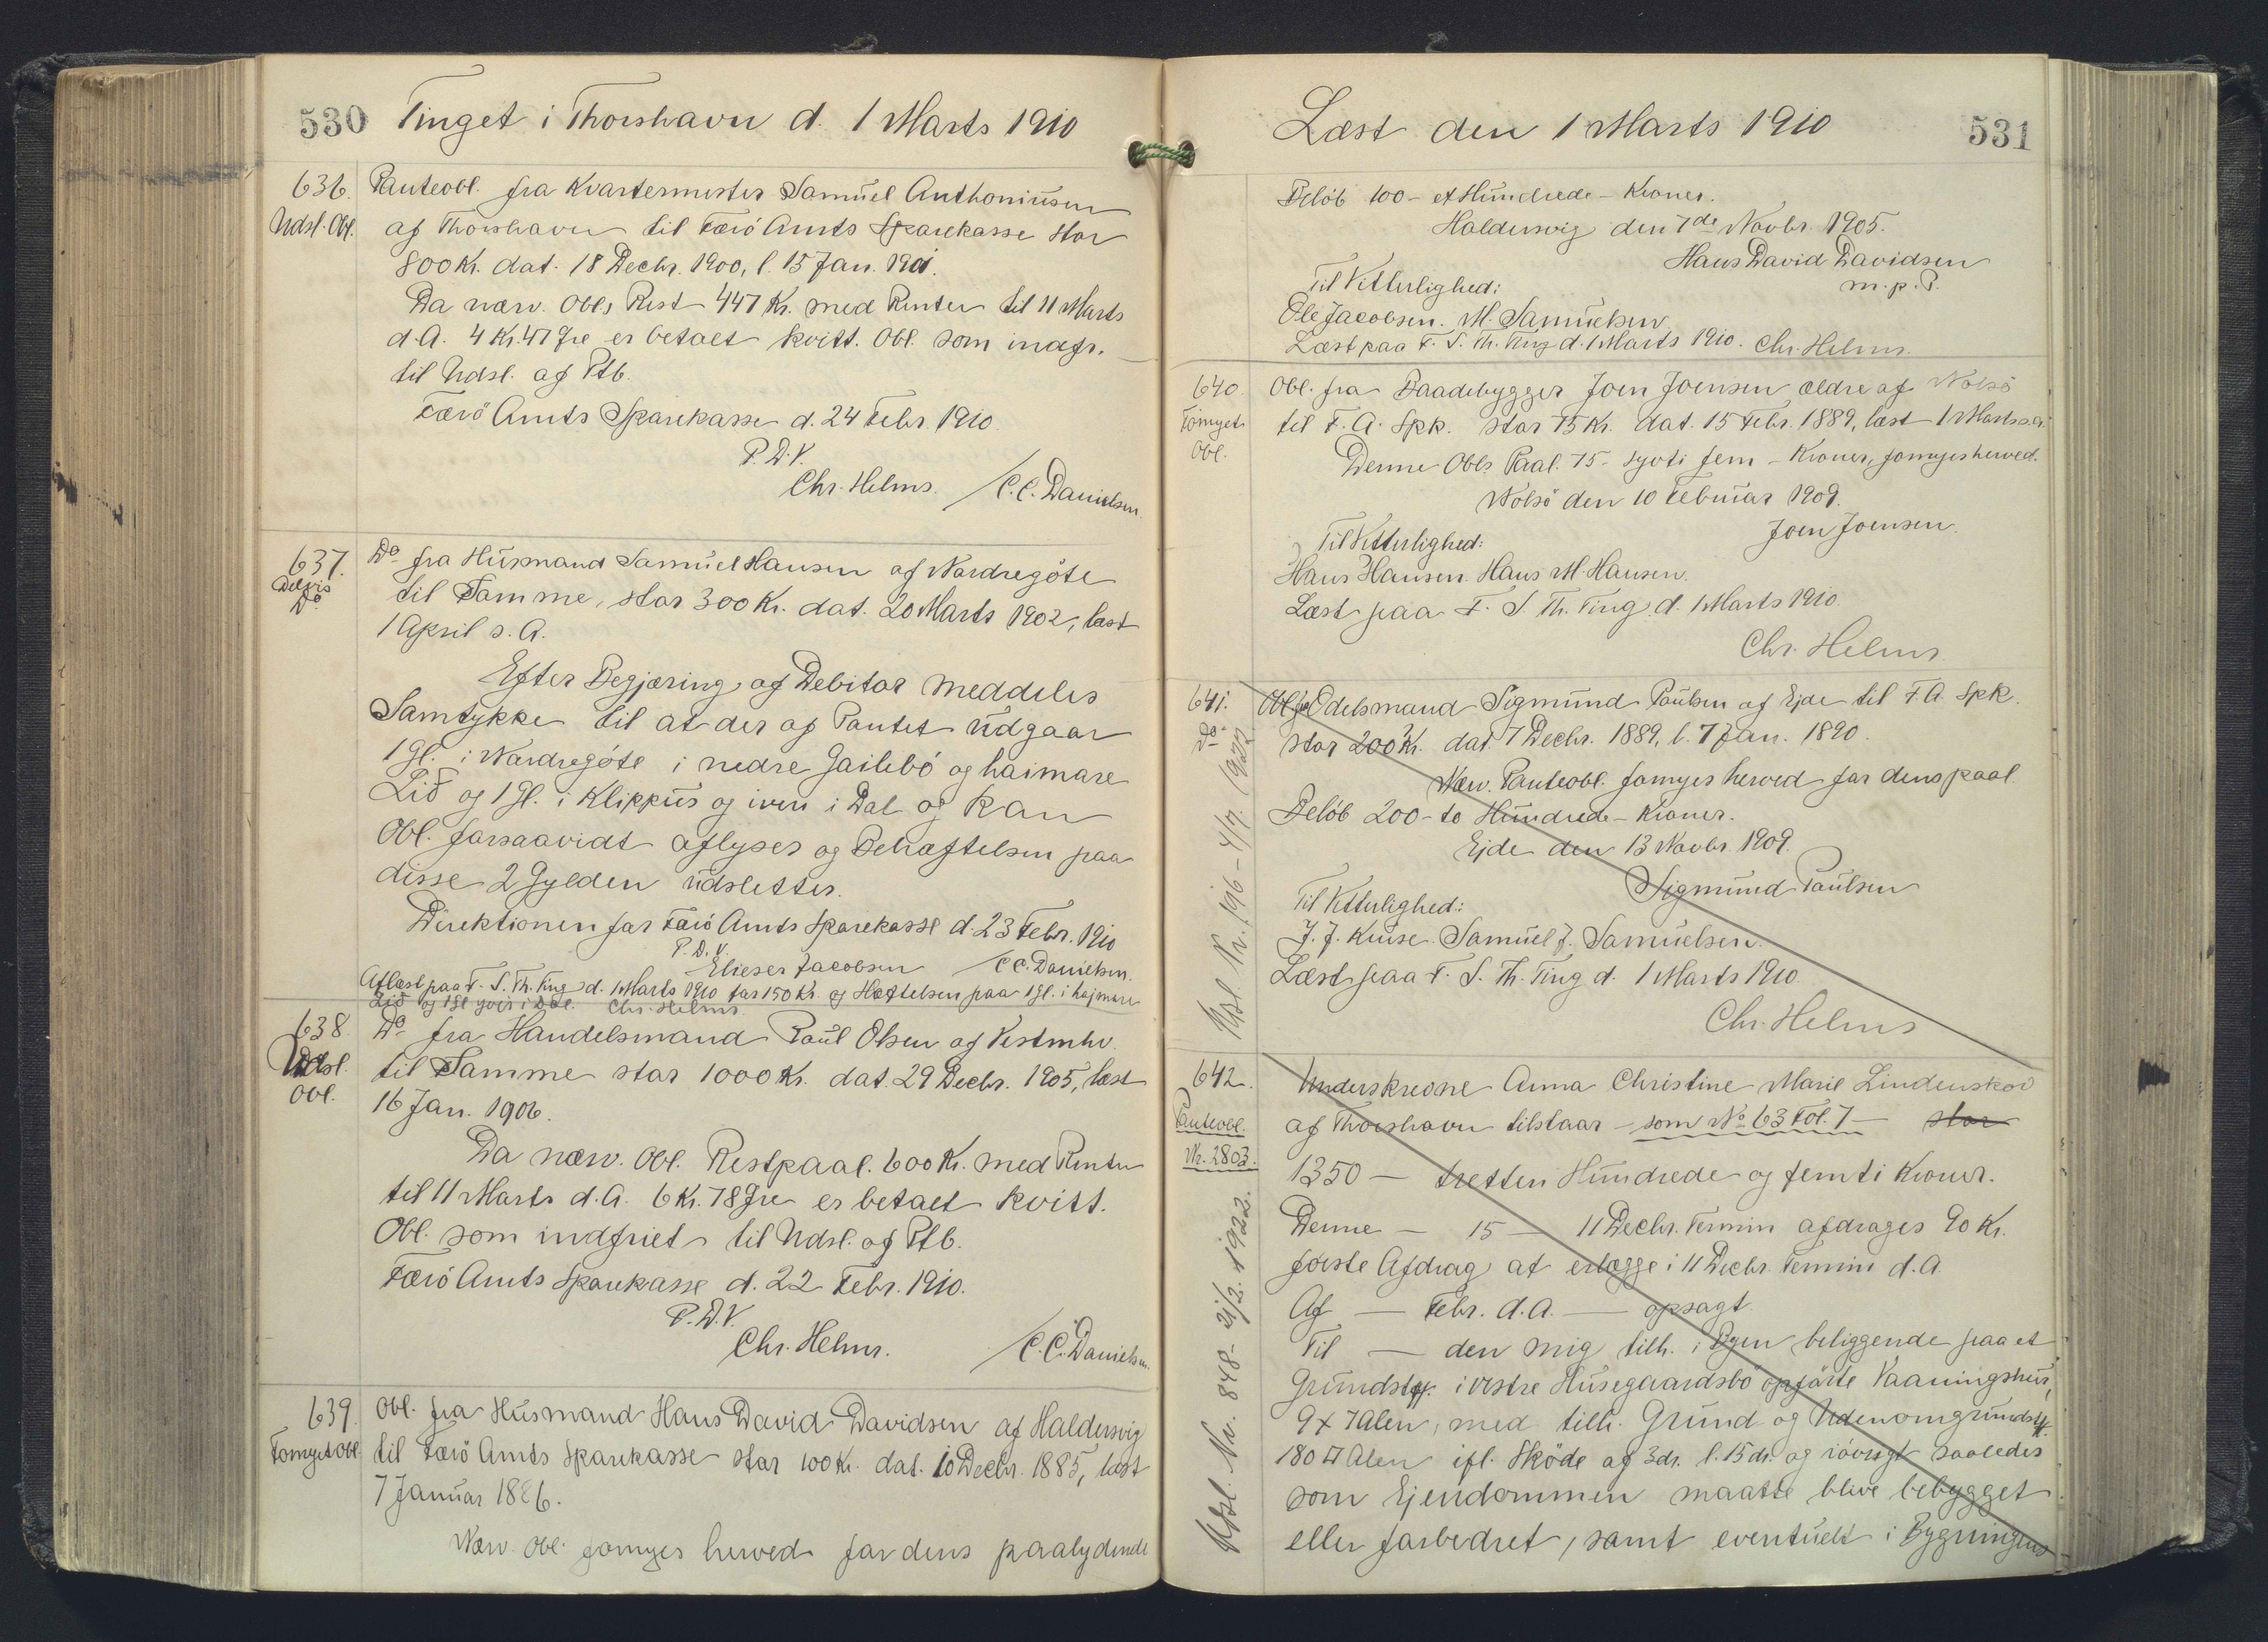 530 Tinget i Thorshavn d. 1 Marts 1910
636. Panteobl. fra Kvartermester Samuel Anthoniusen
Udsl. Obl. af Thorshavn til Færö Amts Sparekasse stor
800 Kr. dat. 18 Decbr. 1900, l. 15 Jan. 1901.
Da nærv. Obls Rest 447 Kr. med Renter til 11 Marts
d.A. 4 Kr. 47 Øre er betalt kvitt. Obl. som indfr.
til Udsl. af Ptb.
Færö Amts Sparekasse d. 24 Febr. 1910.
P.D.V.
Chr. Helms. / C.C. Danielsen.
637. Do fra Husmand Samuel Hansen af Nordregöte
Delvis til Samme, stor 300 Kr. dat. 20 Marts 1902, læst
Do 1 April s. A.
Efter Begjæring af Debitor meddeles
Samtykke til at der af Pantet udgaar
1 Gl. i Nordregöte i nedre Gailebö og haimare
Lið og 1 Gl. i Klippus og iveri i Dal og kan
Obl. forsaavidt aflyses og Behæftelsen paa
disse 2 Gylden udslettes.
Direktionen for Færö Amts Sparekasse d. 23 Febr. 1910
P.D.V.
Elieser Jacobsen / C.C. Danielsen.
Aflæst paa F. S. Th. Ting d. 1 Marts 1910 for 150 Kr. og Hæftelsen paa 1 Gl. i hajmare
Lið og 1 Gl. yvir i Dal. Chr. Helms.
638. Do fra Handelsmand Poul Olsen af Vestmhv.
Udsl. til Samme stor 1000 Kr. dat. 29 Decbr. 1905, læst
Obl. 16 Jan. 1906.
Da nærv. Obl. Restpaal. 600 Kr. med Renter
til 11 Marts d.A. 6 Kr. 78 Øre er betalt kvitt.
Obl. som indfriet til Udsl. af Ptb.
Færö Amts Sparekasse d. 22 Febr. 1910.
P.D.V.
Chr. Helms. / C.C. Danielsen.
639. Obl. fra Husmand Hans David Davidsen af Haldersvig
Fornyet Obl. til Færö Amts Sparekasse stor 100 Kr. dat. 10 Decbr. 1885, læst
7 Januar 1886.
Nærv. Obl. fornyes herved for dens paalydende
Læst den 1 Marts 1910 531
Belöb 100 - et Hundrede - Kroner.
Haldersvig den 7de Novbr. 1905.
Hans David Davidsen
Til Vitterlighed: m. p. P.
Ole Jacobsen. M. Samuelsen
Læst paa F. S. Th. Ting d. 1 Marts 1910. Chr. Helms.
640. Obl. fra Baadebygger Joen Joensen ældre af Nolsö
Fornyet til F. A. Spk. stor 75 Kr. dat. 15 Febr. 1889, læst 1 Marts s.A.
Obl. Denne Obls Paal. 75 - syvti fem - Kroner, fornyes herved.
Nolsö den 10 Februar 1909.
Til Vitterlighed: Joen Joensen.
Hans Hansen. Hans M. Hansen.
Læst paa F. S. Th. Ting d. 1 Marts 1910.
Chr. Helms
641. Obl. fra Odelsmand Sigmund Poulsen af Ejde til F A. Spk.
Do stor 200 Kr. dat. 7 Decbr. 1889, l. 7 Jan. 1890.
Nærv. Panteobl. fornyes herved for dens paal.
Belöb 200 - to Hundrede - Kroner.
Ejde den 13 Novbr. 1909.
Sigmund Poulsen
Til Vitterlighed:
J. J. Kruse. Samuel J. Samuelsen.
Læst paa F. S. Th. Ting d. 1 Marts 1910.
Chr. Helms
Udsl. Nr. 196 - 4/7. 1922
642. Underskrevne Anna Christine Marie Lindenskov
Panteobl. af Thorshavn tilstaar - som No 63 Fol. 7 - stor
Nr. 2803. 1350 - tretten Hundrede og femti Kroner.
Denne - 15 - 11 Decbr. Termin afdrages 90 Kr.
förste Afdrag at erlægge i 11 Decbr. Termin d.A.
Af - Febr. d.A. - opsagt.
Til - den mig tilh. i Byen beliggende paa et
Grundstk. i vestre Husegaardsbö opförte Vaaningshus,
9 x 7 Alen, med tilh. Grund og Udenomgrundstk.
180 □ Alen ifl. Sköde af 3ds. l. 15 ds. og iövrigt saaledes
som Ejendommen maatte blive bebygget
eller forbedret, samt eventuelt i Bygningens
Udsl. Nr. 848 - 21/2. 1922.